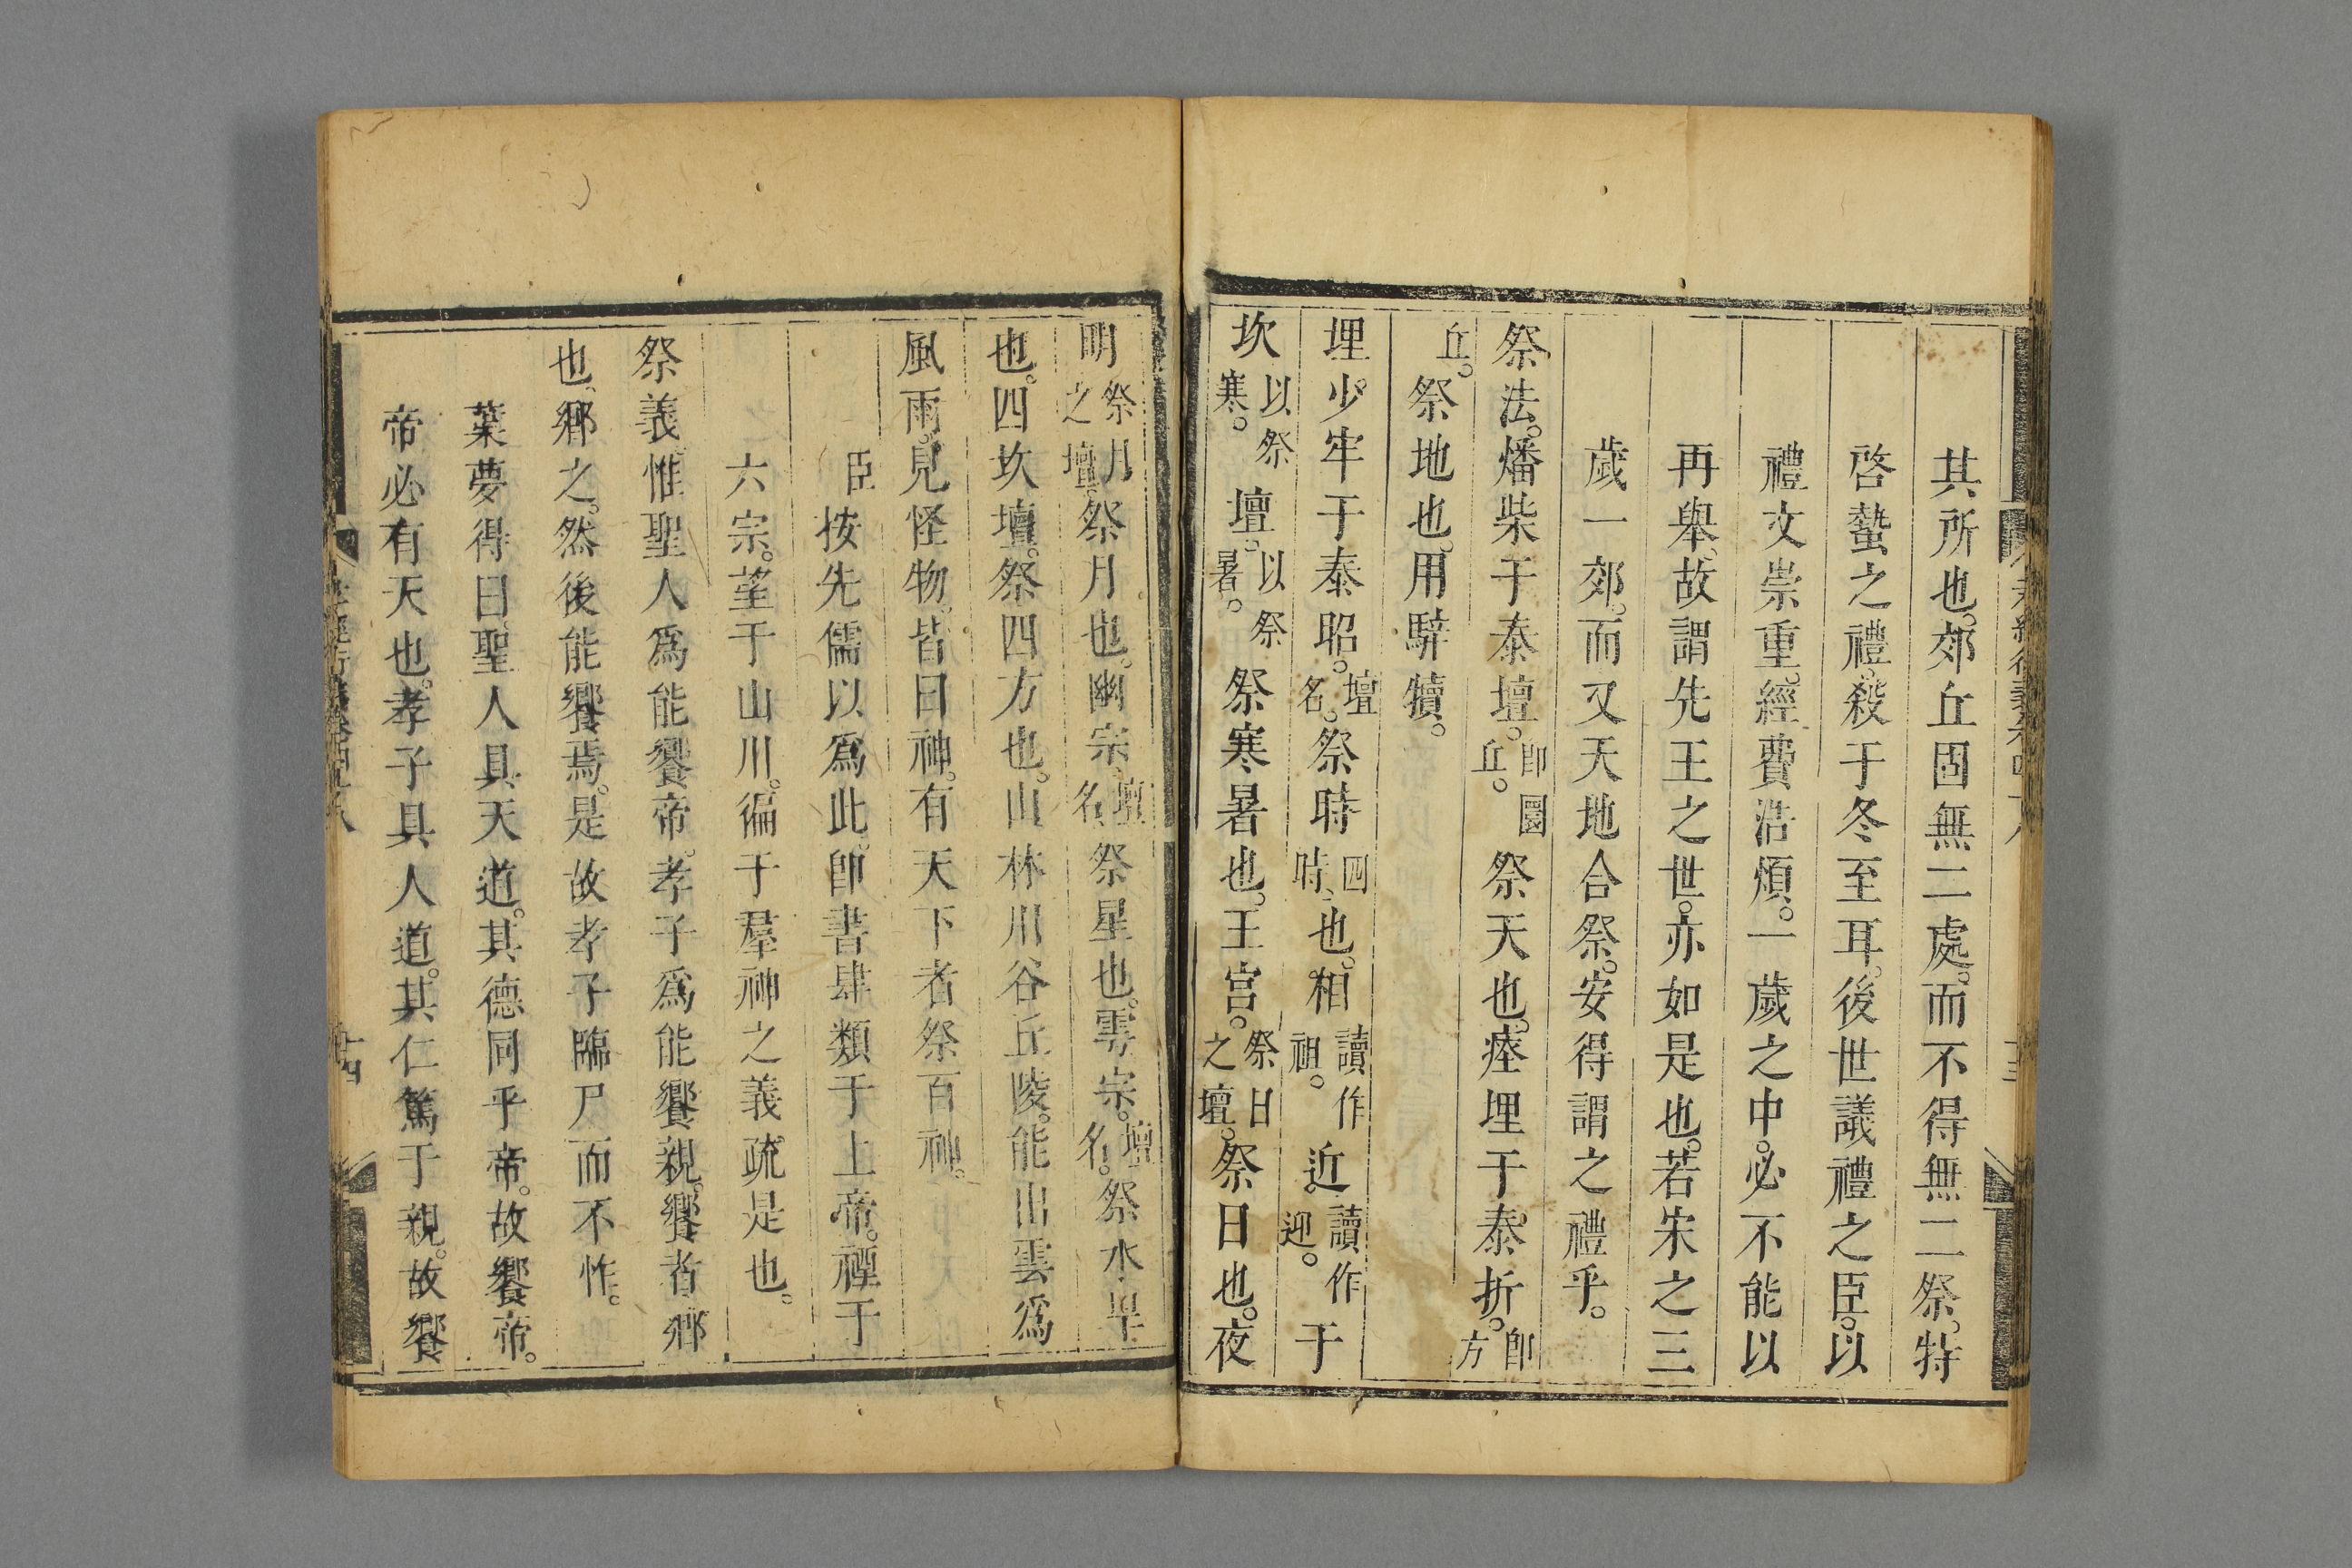 其所也。郊丘固無二處。而不得無二祭。特
啓蟄之禮。殺于冬至耳。後世議禮之臣。以
禮文崇重。經費浩煩。一歲之中。必不能以
再舉。故謂先王之世。亦如是也。若宋之三
歲一郊。而又天地合祭。安得謂之禮乎。
祭法。燔柴于泰壇。即圜丘。祭天也。瘞埋于泰折。即方
丘。祭地也。用騂犢。
埋少牢于泰昭。壇名。祭時四時也。相讀作祖。近讀作迎。于
坎以祭寒。壇以祭暑。祭寒暑也。王宮。祭日之壇。祭日也。夜
明祭月之壇。祭月也。幽宗。壇名。祭星也。雩宗。壇名。祭水旱
也。四坎壇。祭四方也。山林川谷丘陵。能出雲爲
風雨。見怪物。皆曰神。有天下者祭百神。
臣按先儒以爲此。即書肆類于上帝。禋于
六宗。望于山川。徧于羣神之義疏是也。
祭義。惟聖人爲能饗帝。孝子爲能饗親。饗者鄉
也。鄉之。然後能饗焉。是故孝子臨尸而不怍。
葉夢得曰。聖人具天道。其德同乎帝。故饗帝。
帝必有天也。孝子具人道。其仁篤于親。故饗
十四